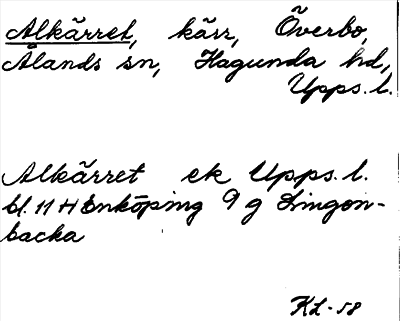 Alkärret, kärr, Överbo,
Ålands sn, Hagunda hd,
Upps. l.
Alkärret ek Upps. l.
bl. 11 H Enköping 9 g Lingon-
backa
KL-58